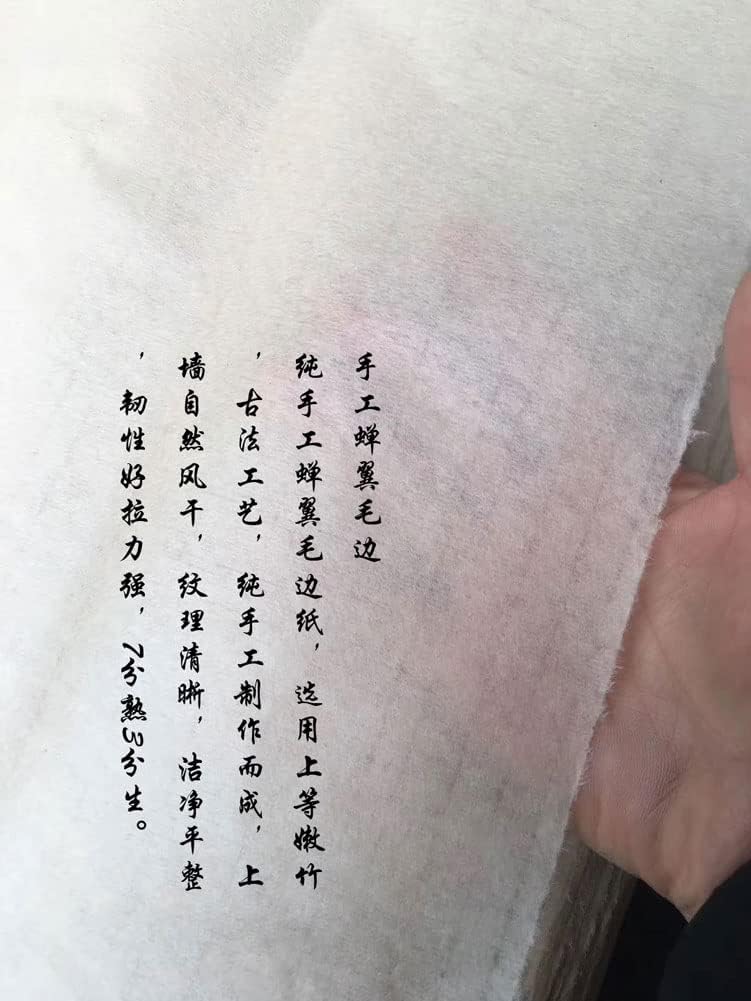 手工蝉翼毛边
纯手工蝉翼毛边纸，选用上等嫩竹
，古法工艺，纯手工制作而成，上
墙自然风干，纹理清晰，洁净平整
，韧性好拉力强，7分熟3分生。